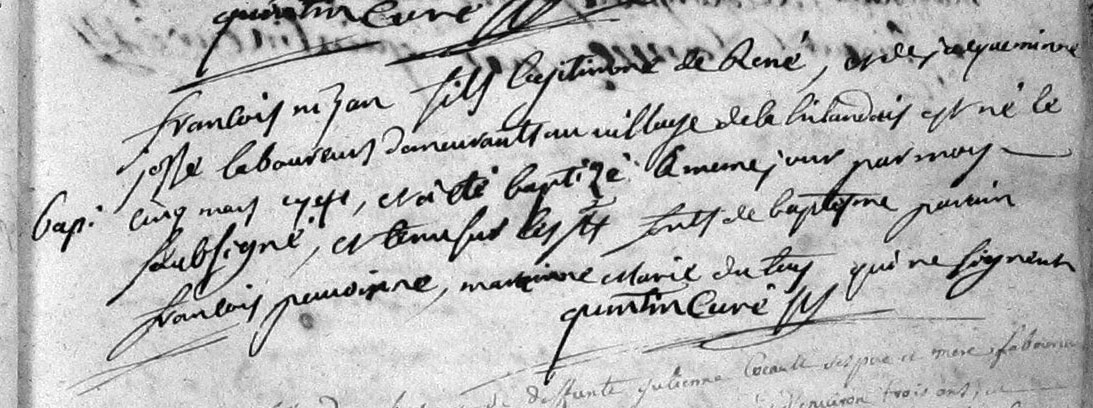 quintin Curé
francois nizan fils legitimme de René, et de jacqueminne
josse laboureurs demeurants au village de la hilandais est né le
Bap: cinq mars cy et, et a eté baptizé le meme jour par moy
soubsigné, et tenu sur les sts fonts de baptesme parain
francois peuvoinne, marainne Marie du tay qui ne signent
quintin Curé
deffunte julienne ses pere et mere, laboureur
d'environ trois ans, et